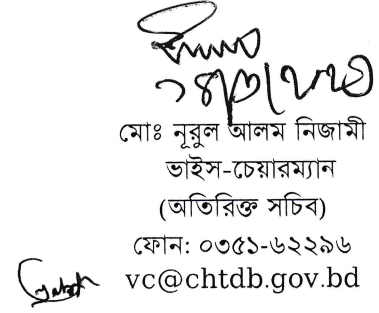 মোঃ নূরুল আলম নিজামী
ভাইস-চেয়ারম্যান
(অতিরিক্ত সচিব)
ফোন: ০৩৫১-৬২২৯৬
vc@chtdb.gov.bd